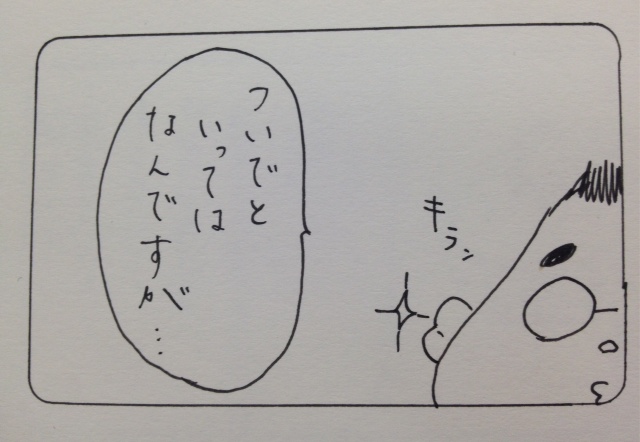 キラン
ついでと
いっては
なんですが…